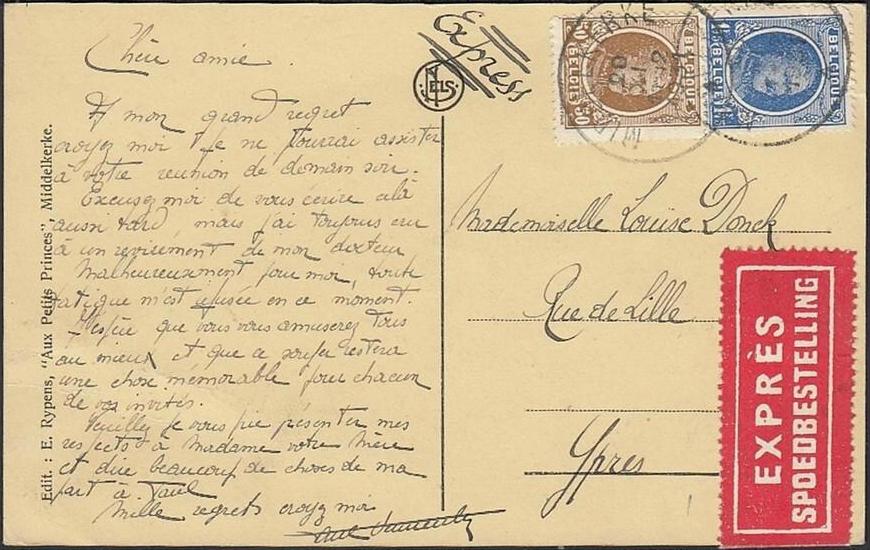 Chère amie.
A mon grand regret
croyez moi je ne pourrai assister
à votre reunion de demain soir.
Excusez moi de vous écrire cela
aussi tard, mais j'ai toujours cru
à un revirement de mon docteur
Malheureusement pour moi, toute
fatigue m'est refusée en ce moment.
J'espère que vous vous amuserez tous
au mieux et que ce souper restera
une chose mémorable pour chacun
de vos invités.
Veuillez je vous prie présenter mes
respects à Madame votre Mère
et dire beaucoup de choses de ma
part à Paul
Mille regrets croyez moi
Edit. : E. Rypens, "Aux Petits Princes", Middelkerke.
ELS
Express
BELGIQUE
BELGIË
50
50
BELGIQUE
BELGIË
20
XI
Mademoiselle Louise Donck
Rue de Lille
Ypres
EXPRÈS
SPOEDBESTELLING